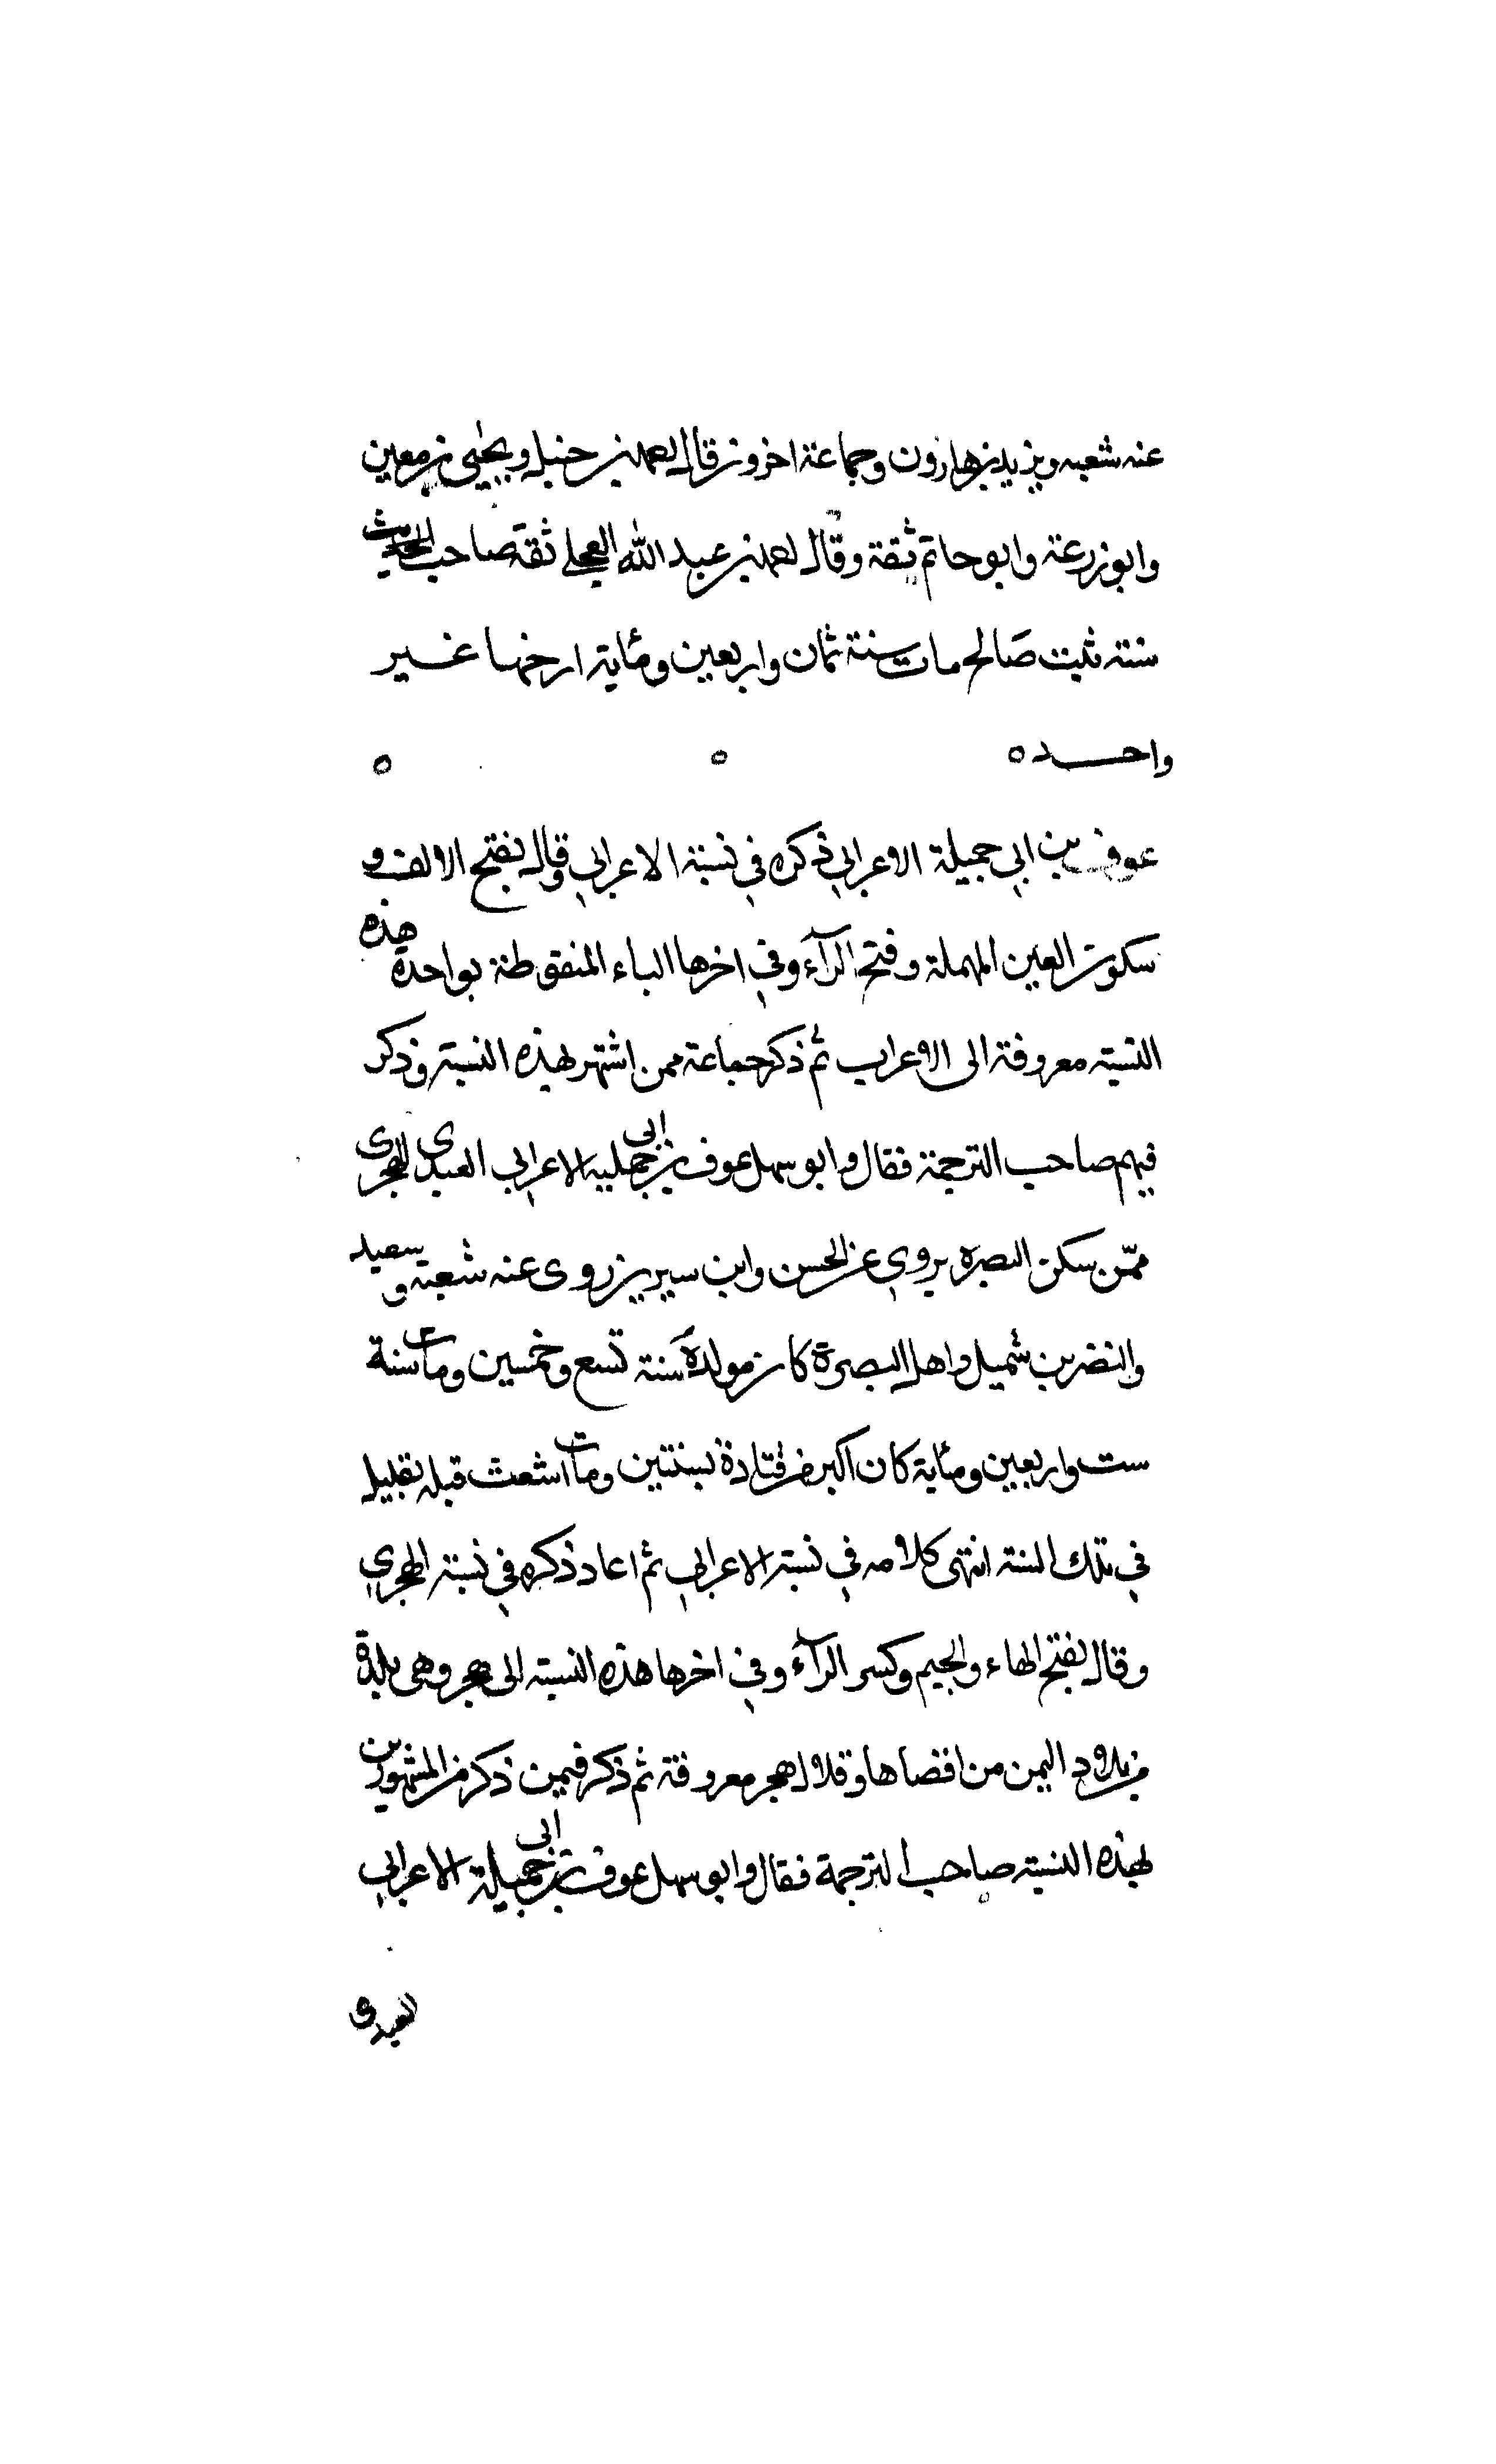 عنه شعبه ويزيد بن هارون وجماعة اخرون قال احمد بن حنبل ويحيى بن معين
وابو زرعة وابو حاتم ثقة وقال احمد بن عبد الله العجلي ثقة صاحب الحديث
سنته ثبت صالح مات سنة ثمان واربعين ومئاية ارخها غير
واحد ه ه ه
عوف بن ابي جميلة الاعرابي ذكره في نسبة الاعرابي وقال بفتح الالف و
سكون العين المهملة وفتح الرآء وفي اخرها الباء المنقوطة بواحدة هذه
النسبة معروفة الى الاعراب ثم ذكر جماعة ممن اشتهر بهذه النسبة وذكر
فيهم صاحب الترجمة فقال وابو سهل عوف بن ابي جميلة الاعرابي العبدي الهجري
ممّن سكن البصرة يروي عن الحسن وابن سيرين روى عنه شعبة وسعيد
والنضر بن شميل واهل البصرة كان مولده سنة تسع وخمسين ومات سنة
ست واربعين ومئاية كان اكبر من قتادة بسنتين ومات اشعث قبله بقليل
في تلك السنة انتهى كلامه في نسبة الاعرابي ثم اعاد ذكره في نسبة الهجري
وقال بفتح الهاء والجيم وكسر الرآء وفي اخرها هذه النسبة الى هجر وهى بلدة
من بلاد اليمن من اقصاها وقلال هجر معروفة ثم ذكر فيمن ذكر من المشهورين
بهذه النسبة صاحب الترجمة فقال وابو سهل عوف بن ابي جميلة الاعرابي
العبدي